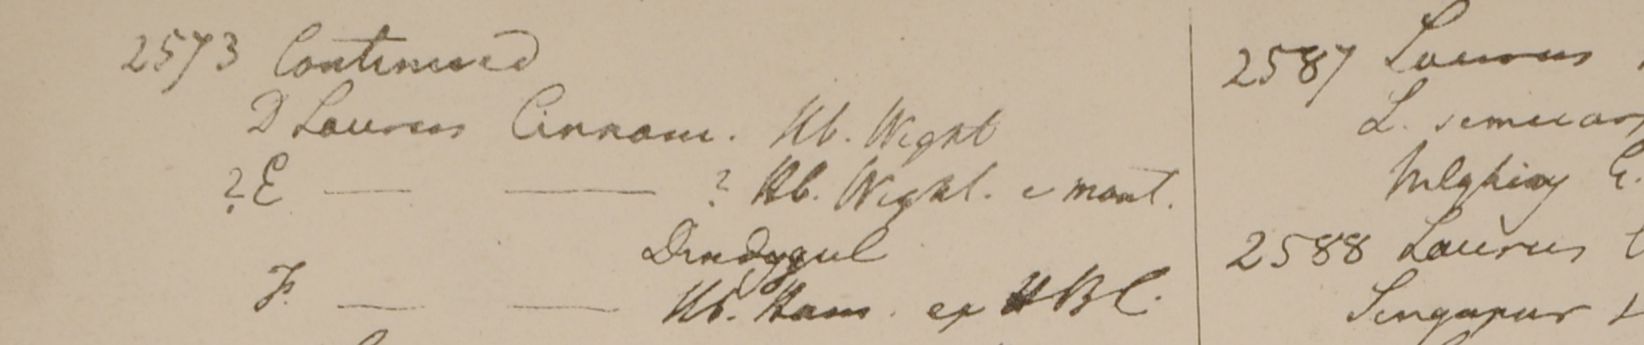 2573 Continued
D Laurus Cinnam. Hb. Wight
? E — — ? Hb. Wight. e mont.
Dindygul
F. — — Hb. Ham. ex HBC.
2587 Laurus
L. semecarp
Nilghiry G.
2588 Laurus
Singapur